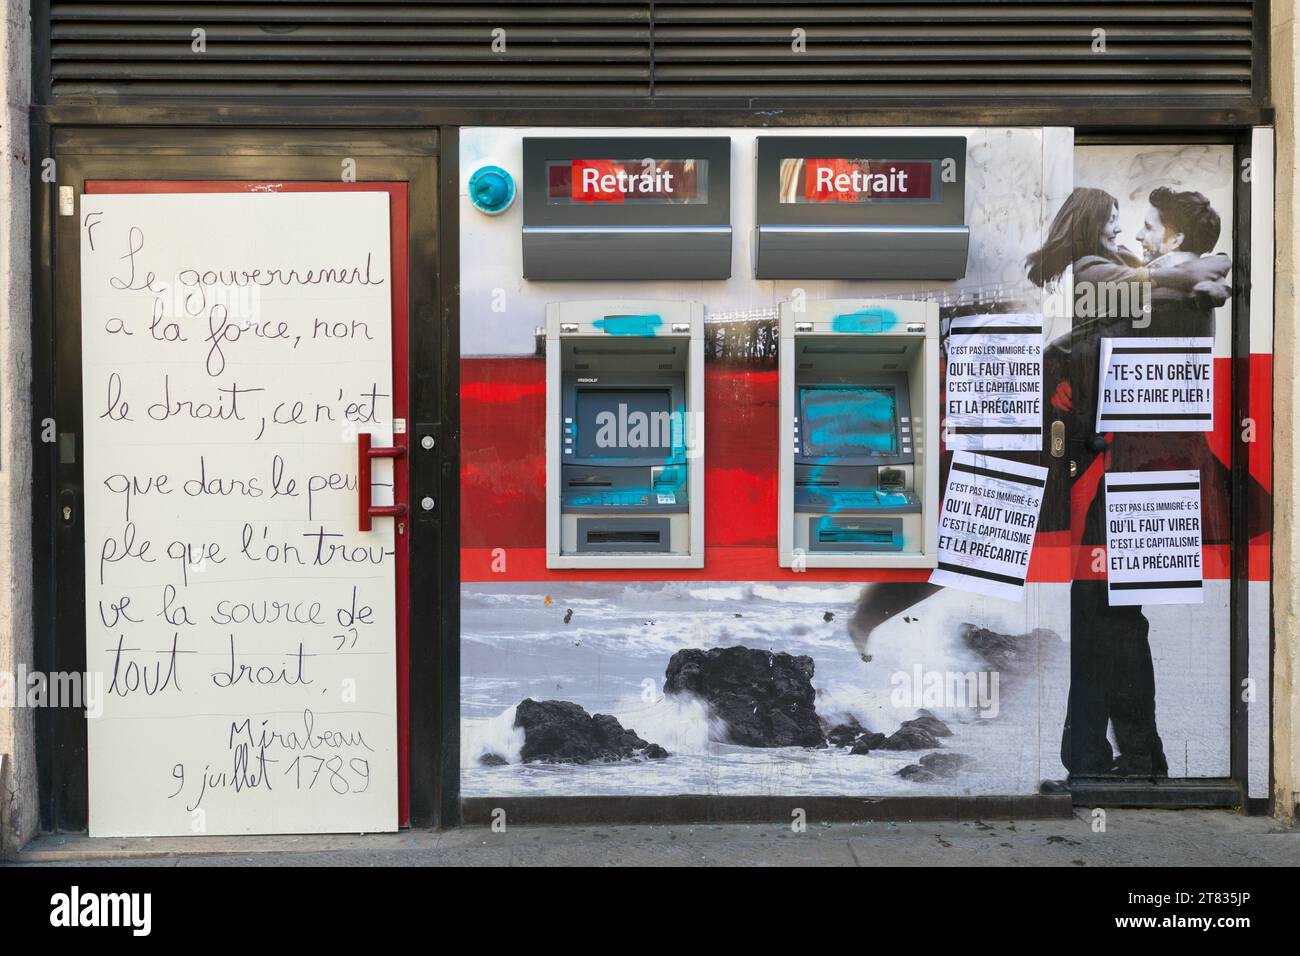 Le gouvernement
a la force, non
le droit, ce n'est
que dans le peu-
ple que l'on trou-
ve la source de
tout droit. ”
Mirabeau
9 juillet 1789
Retrait
Retrait
C'EST PAS LES IMMIGRÉ-E-S
QU'IL FAUT VIRER
C'EST LE CAPITALISME
ET LA PRÉCARITÉ
-TE-S EN GRÈVE
R LES FAIRE PLIER !
C'EST PAS LES IMMIGRÉ-E-S
QU'IL FAUT VIRER
C'EST LE CAPITALISME
ET LA PRÉCARITÉ
C'EST PAS LES IMMIGRÉ-E-S
QU'IL FAUT VIRER
C'EST LE CAPITALISME
ET LA PRÉCARITÉ
alamy
Image ID: 2T835JP
www.alamy.com